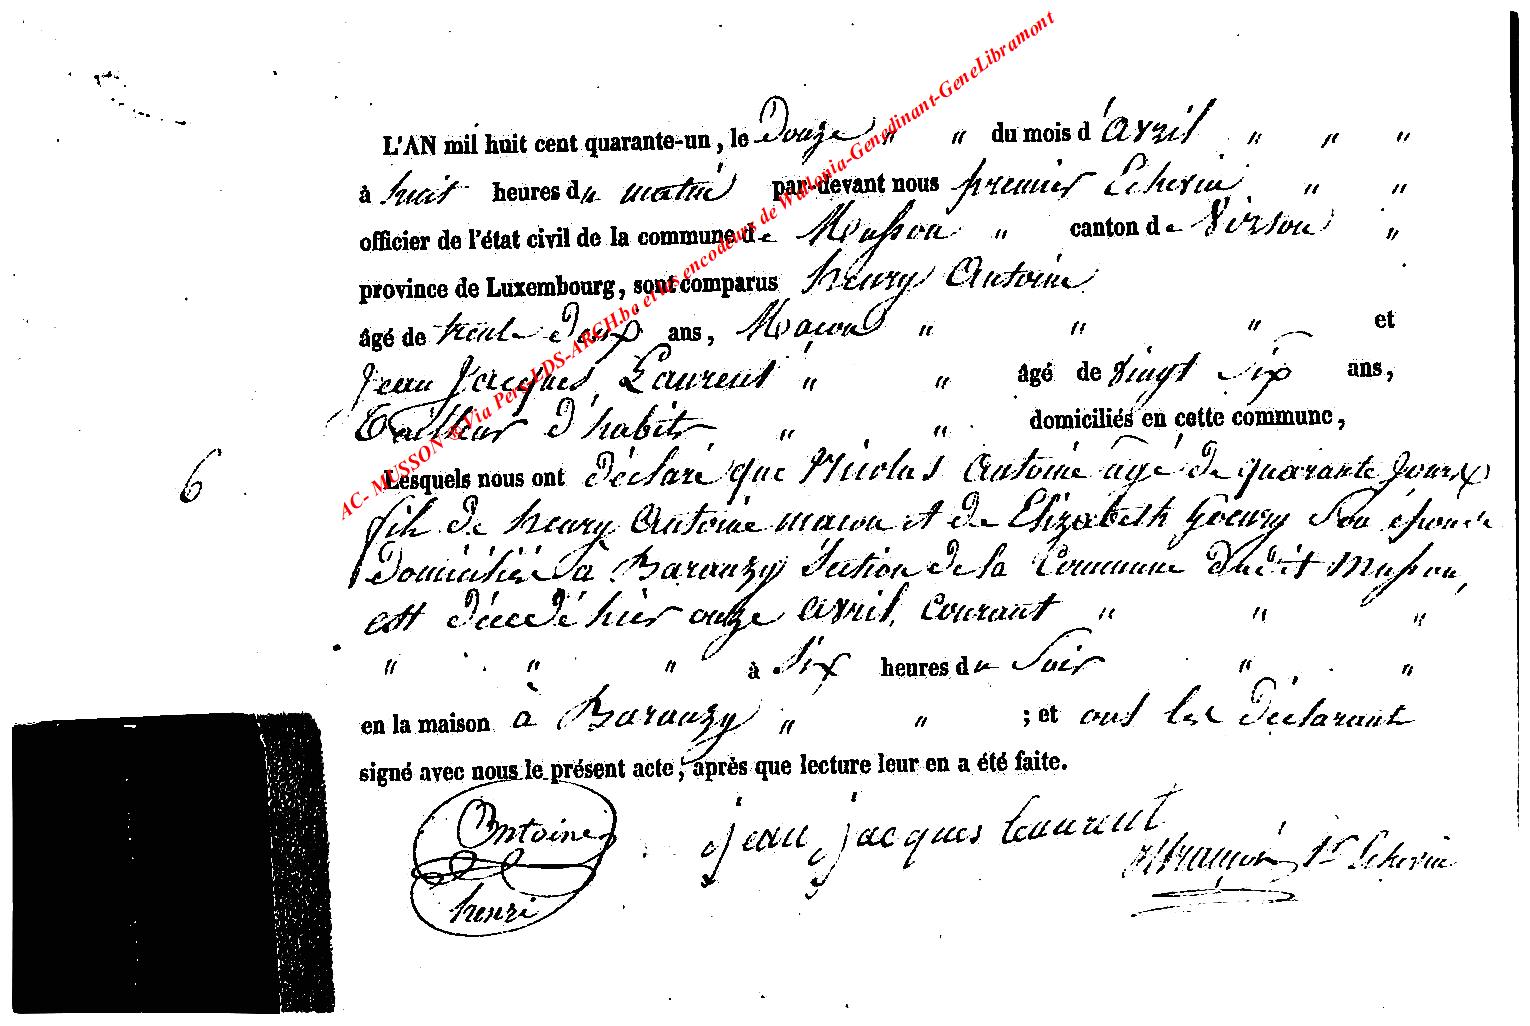 L'AN mil huit cent quarante-un, le Douze " " du mois d'avril " " "
à huit heures du matin par-devant nous premier Echevin " "
officier de l'état civil de la commune de Musson " canton de Virton "
province de Luxembourg, sont comparus henry Antoine
âgé de trente deux ans, Macon " " " et
Jean Jacques Laurent " " âgé de vingt six ans,
Tailleur d'habits " " domiciliés en cette commune,
6 Lesquels nous ont déclaré que Nicolas Antoine âgé de quarante jours
fils de henry Antoine macon et de Elizabeth Goeury son épouse
domiciliés à Baranzy section de la Commune dudit Musson,
est décédé hier onze avril courant " " "
" " " à six heures du soir " "
en la maison à Baranzy " " ; et ont les déclarant
signé avec nous le présent acte, après que lecture leur en a été faite.
Antoine
henri
jean jacques Laurent
1r Echevin
AC- MUSSON ®Via Pers LDS-ARCH.be et les encodeurs de Wallonia-Genedinant-GeneLibramont